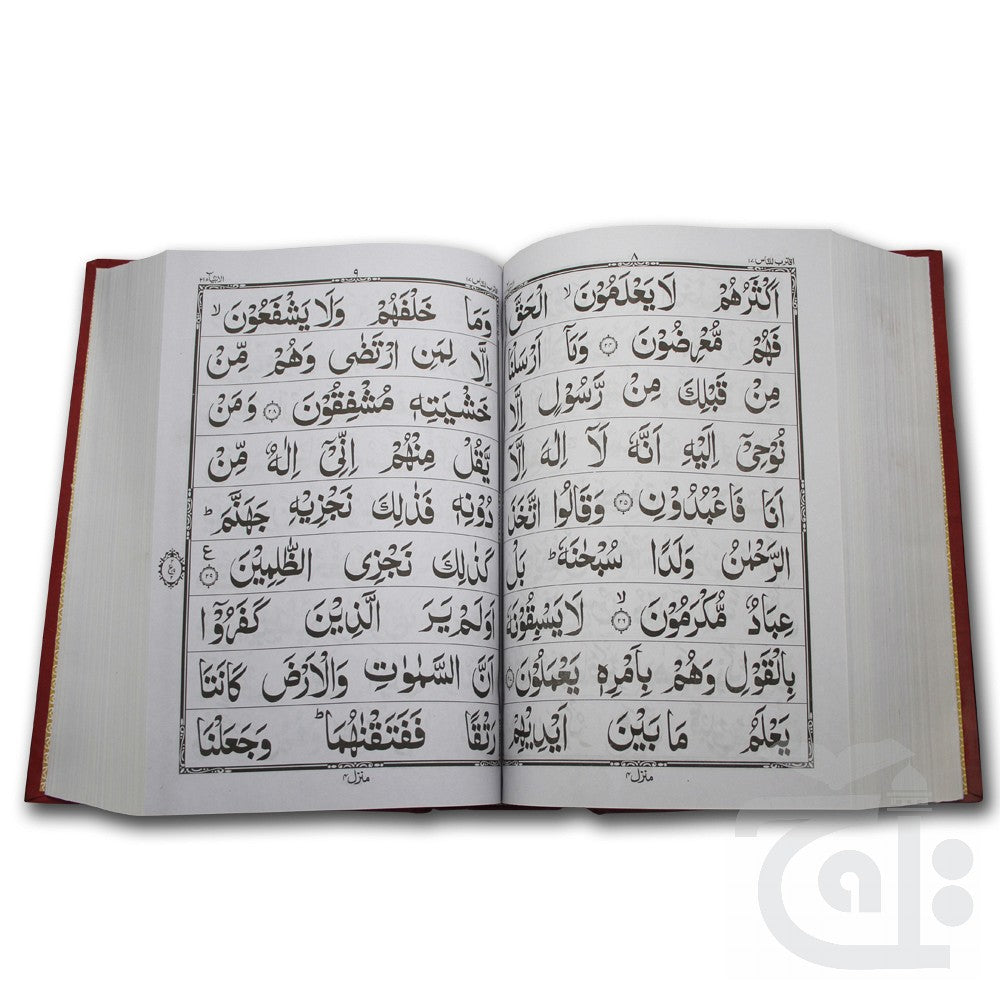 اقترب للناس ١٧
٨
اَكْثَرُهُمْ لَا يَعْلَمُوْنَ ۙ الْحَقَّ
فَهُمْ مُّعْرِضُوْنَ ۝۲۴ وَمَاۤ اَرْسَلْنَا
مِنْ قَبْلِكَ مِنْ رَّسُوْلٍ اِلَّا
نُوْحِیْۤ اِلَیْهِ اَنَّهٗ لَاۤ اِلٰهَ اِلَّاۤ
اَنَا فَاعْبُدُوْنِ ۝۲۵ وَقَالُوا اتَّخَذَ
الرَّحْمٰنُ وَلَدًا سُبْحٰنَهٗ ؕ بَلْ
عِبَادٌ مُّكْرَمُوْنَ ۝۲۶ ۙ لَا یَسْبِقُوْنَهٗ
بِالْقَوْلِ وَهُمْ بِاَمْرِهٖ یَعْمَلُوْنَ ۝۲۷
یَعْلَمُ مَا بَیْنَ اَیْدِیْهِمْ
منزل ۴
٩
الانبیآء ۲۱
وَمَا خَلْفَهُمْ وَلَا یَشْفَعُوْنَ ۙ
اِلَّا لِمَنِ ارْتَضٰی وَهُمْ مِّنْ
خَشْیَتِهٖ مُشْفِقُوْنَ ۝۲۸ وَمَنْ
یَّقُلْ مِنْهُمْ اِنِّیْۤ اِلٰهٌ مِّنْ
دُوْنِهٖ فَذٰلِكَ نَجْزِیْهِ جَهَنَّمَ ؕ
كَذٰلِكَ نَجْزِی الظّٰلِمِیْنَ ۝۲۹ ع
وَلَمْ یَرَ الَّذِیْنَ كَفَرُوْۤا
اَنَّ السَّمٰوٰتِ وَالْاَرْضَ كَانَتَا
رَتْقًا فَفَتَقْنٰهُمَا ؕ وَجَعَلْنَا
منزل ۴